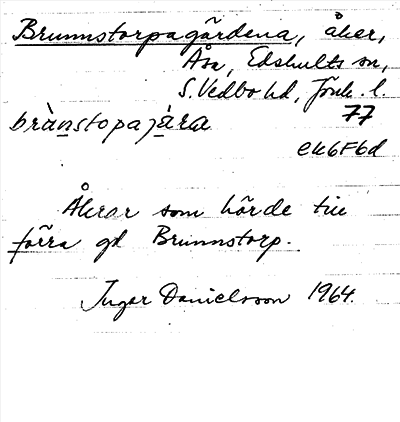 Brunnstorpagärdena, åker,
Åsa, Edshults sn,
S. Vedbo hd, Jönk. l.
brànstopajä̀ra 77
ek6F6d
Åkrar som hörde till
förra gd Brunnstorp.
Ingar Danielsson 1964.